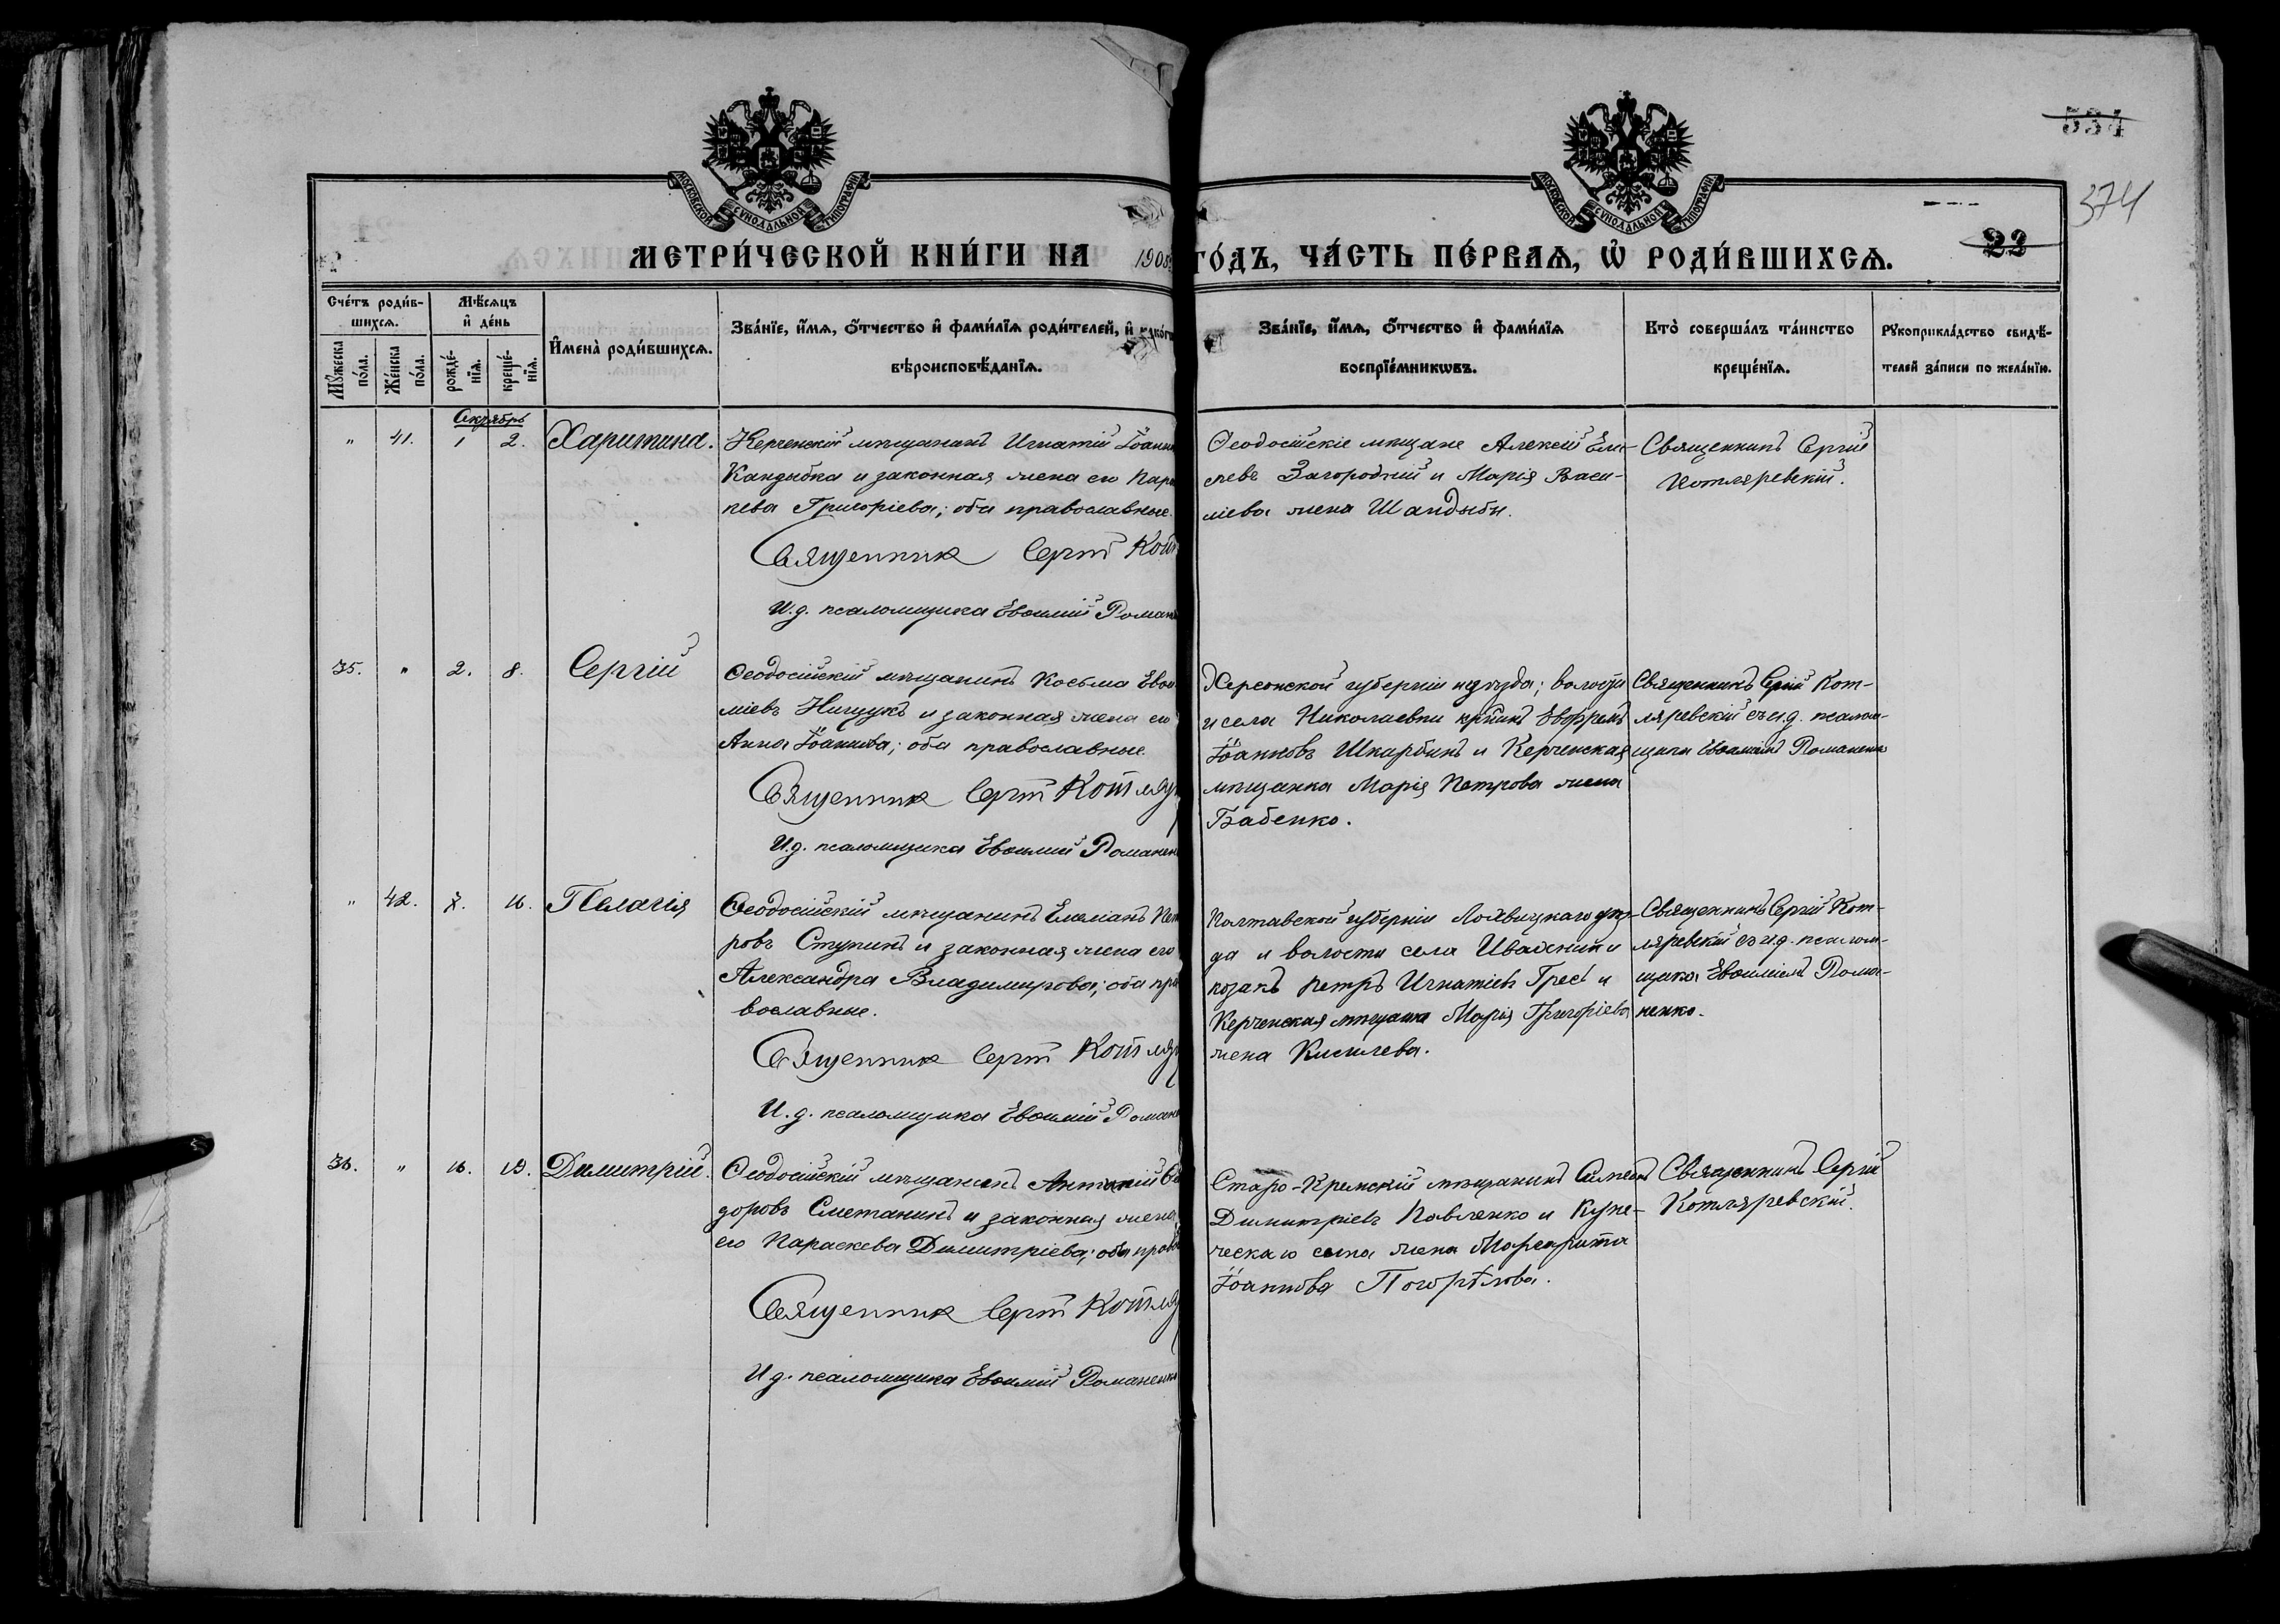 534
374
МОСКОВСКОЙ СѴНОДАЛЬНОЙ ТИПОГРАФІИ
МОСКОВСКОЙ СѴНОДАЛЬНОЙ ТИПОГРАФІИ
МЕТРИ́ЧЕСКОЙ КНИ́ГИ НА 1908
ГО́ДЪ, ЧА́СТЬ ПЕ́РВАЯ, Ѡ҆ РОДИ́ВШИХСЯ.
22
Сче́тъ роди́в-
шихся.
Мѣ́сяцъ
и҆ де́нь
Мꙋ́жеска по́ла.
Же́нска по́ла.
рожде́-нїя.
креще́-нїя.
И҆мена̀ роди́вшихся.
Зва́нїе, и҆́мя, ѻ҆́тчество и҆ фами́лїя роди́телей, и҆ како́гѡ
вѣроисповѣ́данїя.
Зва́нїе, и҆́мя, ѻ҆́тчество и҆ фами́лїя
воспрїе́мникѡвъ.
Кто̀ соверша́лъ та́инство
креще́нїя.
Рꙋкоприкла́дство свидѣ́-
телей за́писи по жела́нїю.
Октябрь
" 41. 1 2. Харитина.
Керченскій мѣщанинъ Игнатій Іоанн
Кандыбка и законная жена его Пара
кева Григоріева; оба православные.
Священник Сергій Кот
И.д. псаломщика Евѳимій Роман
Ѳеодосійскіе мѣщане Алексій Ели-
сѣевъ Загородній и Марія Васи-
ліева жена Шандыбы.
Священникъ Сергій
Котляревскій.
35. " 2. 8. Сергій
Ѳеодосійскій мѣщанинъ Косьма Евѳи
міевъ Нищукъ и законная жена его
Анна Іоаннова; оба православные.
Священник Сергій Котляр
И.д. псаломщика Евѳимій Романен
Херсонской губерніи и уѣзда; волости
и села Николаевки кр-нинъ Евфремъ
Іоанновъ Шкарбинъ и Керченская
мѣщанка Марія Петрова жена
Бабенко.
Священникъ Сергій Кот-
ляревскій съ и.д. псалом-
щика Евѳиміемъ Романенко
" 42. 7. 16. Пелагія
Ѳеодосійскій мѣщанинъ Емеліанъ Пет
ровъ Ступинъ и законная жена его
Александра Владимирова; оба пра
вославные.
Священник Сергій Котляр
И.д. псаломщика Евѳимій Роман
Полтавской губерніи Лохвицкаго уѣз-
да и волости села Ивахники
козакъ Петръ Игнатіевъ Гресь и
Керченская мѣщанка Марія Григоріева
жена Киселева.
Священникъ Сергій Кот-
ляревскій съ и.д. псалом-
щика Евѳиміемъ Рома-
ненко.
36. " 16. 19. Димитрій.
Ѳеодосійскій мѣщанинъ Антоній Ѳе
доровъ Сметанинъ и законная жена
его Параскева Димитріева; оба право
Священник Сергій Котля
И д. псаломщика Евѳимій Романенк
Старо-Крымскій мѣщанинъ Симеонъ
Димитріевъ Павленко и Купе-
ческаго сына жена Маргарита
Іоаннова Погорѣлова.
Священникъ Сергій
Котляревскій.